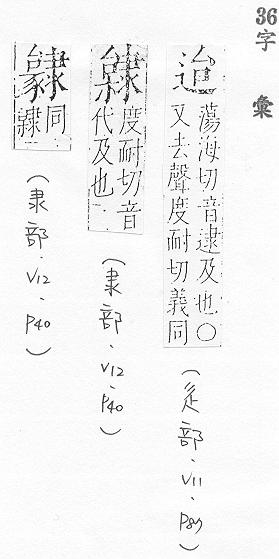 36
字彙
迨
蕩海切音逮及也○
又去聲度耐切義同
(辵部.V11.P89)
度耐切音
代及也
(隶部.V12.P40)
同
(隶部.V12.P40)